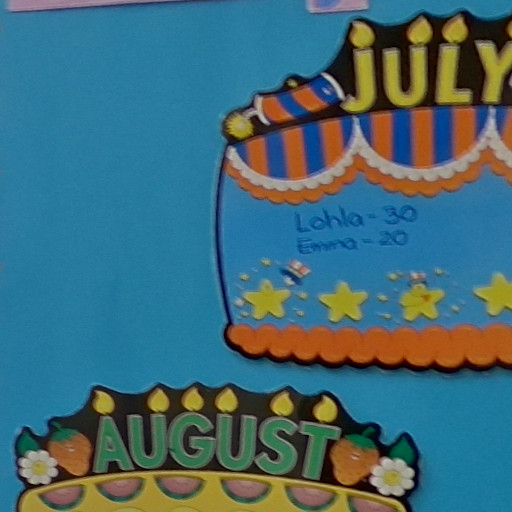 JULY
Lohla - 30
Emma - 20
AUGUST